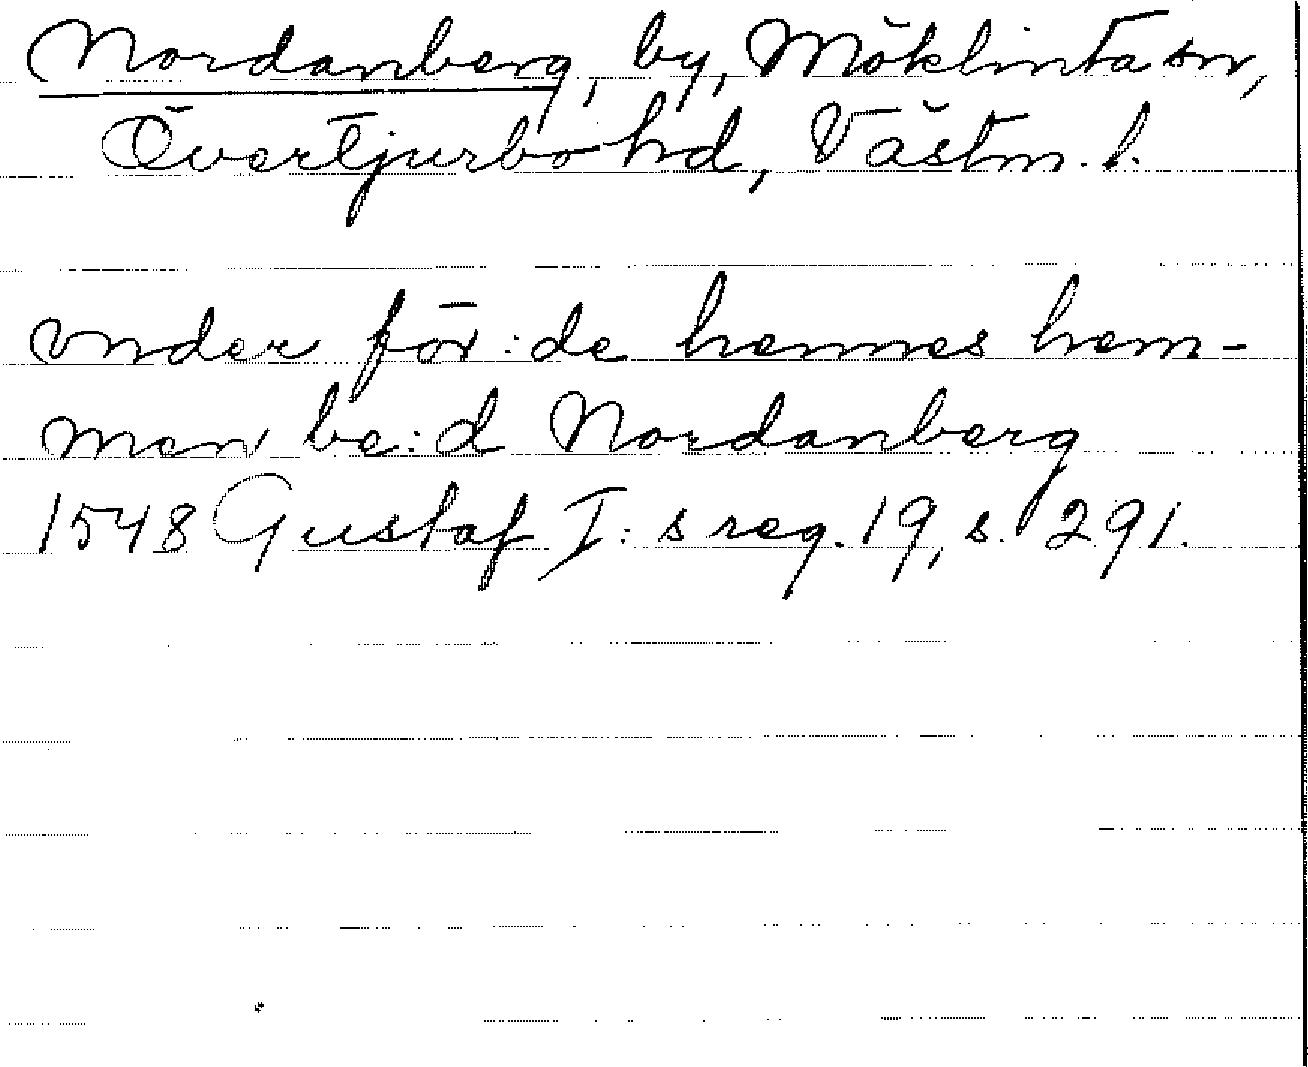 Nordanberg, by, Möklinta sn,
Övertjurbo hd, Västm. l.
vnder för:de hennes hem-
man be:d Nordanberg
1548 Gustaf I:s reg. 19, s. 291.